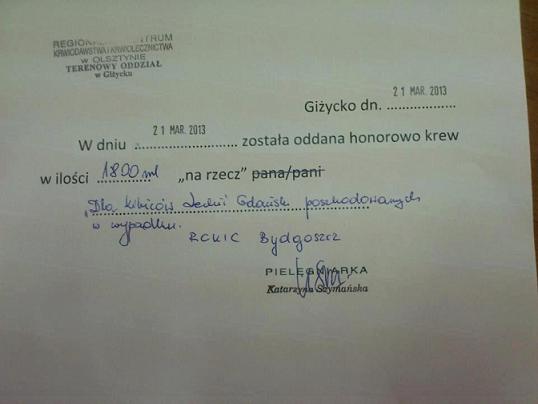 REGIONALNE CENTRUM
KRWIODAWSTWA I KRWIOLECZNICTWA
w OLSZTYNIE
TERENOWY ODDZIAŁ
w Giżycku
21 MAR. 2013
Giżycko dn. ....................
W dniu 21 MAR. 2013 została oddana honorowo krew
w ilości 1800 ml „na rzecz" pana/pani
„Dla kibiców Lechii Gdańsk poszkodowanych
w wypadku.
RCKIC Bydgoszcz
PIELĘGNIARKA
Katarzyna Szymańska